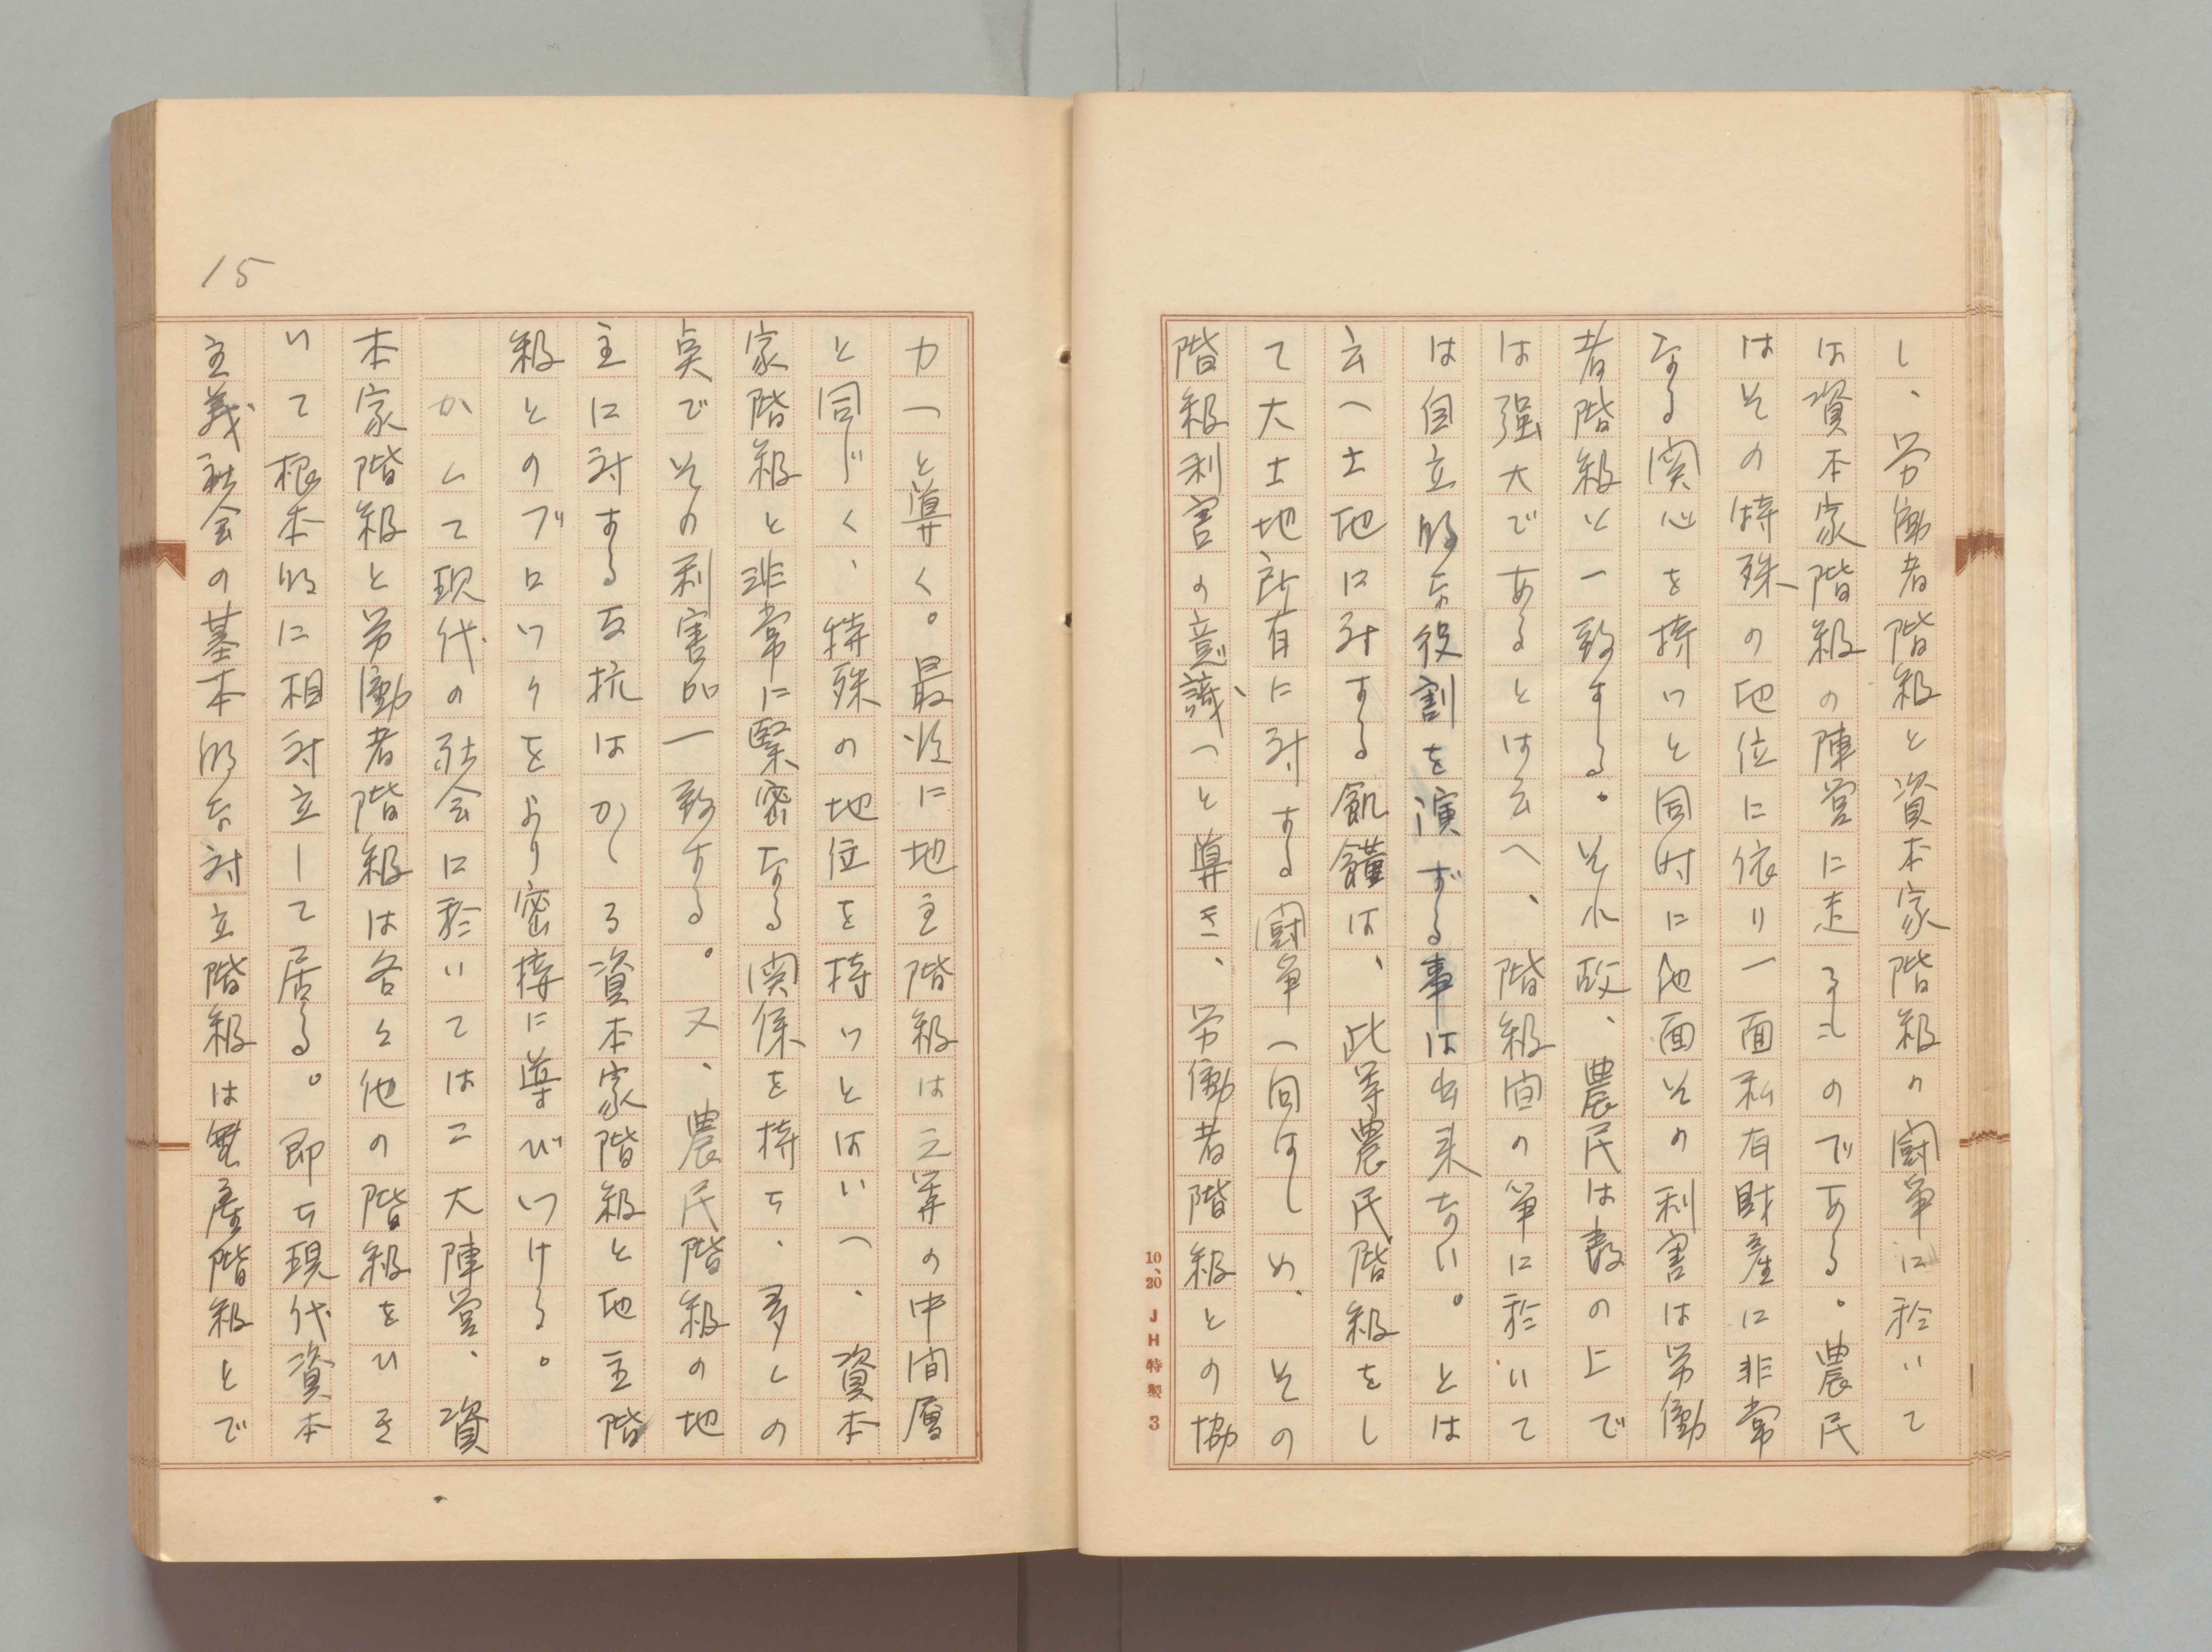 し、労働者階級と資本家階級の闘争に於いて
は資本家階級の陣営に走るものである。農民
はその特殊の地位に依り一面私有財産に非常
なる関心を持つと同時に他面その利害は労働
者階級と一致する。それ故、農民は数の上で
は強大であるとは云へ、階級間の争に於いて
は自立的な役割を演ずる事は出来ない。とは
云へ土地に対する飢饉は、此等農民階級をし
て大土地所有に対する闘争へ向はしめ、その
階級利害の意識へと導き、労働者階級との協
10、20 JH特製 3
力へと導く。最后に地主階級は之等の中間層
と同じく、特殊の地位を持つとはいへ、資本
家階級と非常に緊密なる関係を持ち、多くの
点でその利害品一致する。又、農民階級の地
主に対する反抗はかゝる資本家階級と地主階
級とのブロックをより密接に導びつける。
かくて現代の社会に於いては二大陣営、資
本家階級と労働者階級は各々他の階級をひき
いて根本的に相対立して居る。即ち現代資本
主義社会の基本的な対立階級は無産階級とで
15